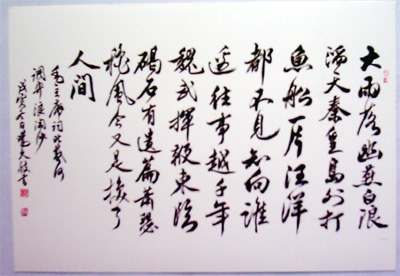 大雨落幽燕白浪
滔天秦皇島外打
魚船一片汪洋
都不見知向谁
边往事越千年
魏武揮鞭東临
碣石有遗篇萧瑟
秋風今又是换了
人间
毛主席词北戴河
调寄浪淘沙
戊寅